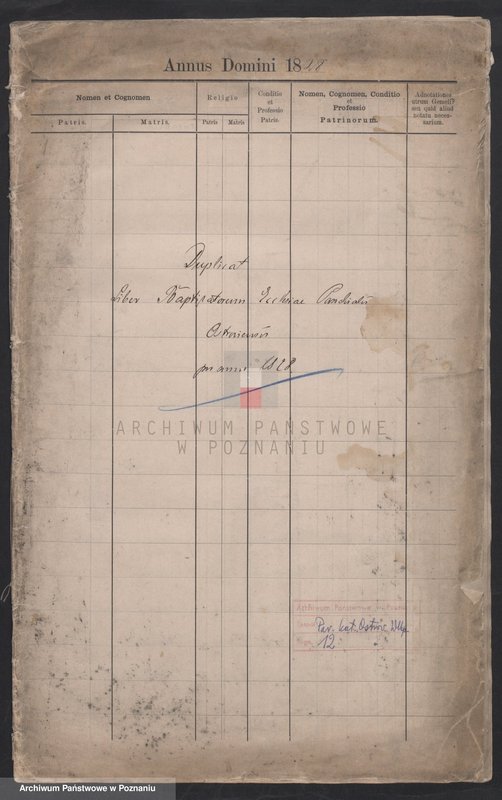 Annus Domini 1828
Nomen et Cognomen
Religio
Conditio
et
Professio
Patris.
Nomen, Cognomen, Conditio
et
Professio
Patrinorum.
Adnotationes
utrum Gemeli?
seu quid aliud
notatu neces-
sarium.
Patris.
Matris.
Patris
Matris
Duplicat
Liber Baptisatorum Ecclesiae Parochialis
pro anno 1828
ARCHIWUM PAŃSTWOWE
W POZNANIU
Archiwum Państwowe w Poznaniu
Par. kat. Ostrów Wlkp.
12
Archiwum Państwowe w Poznaniu